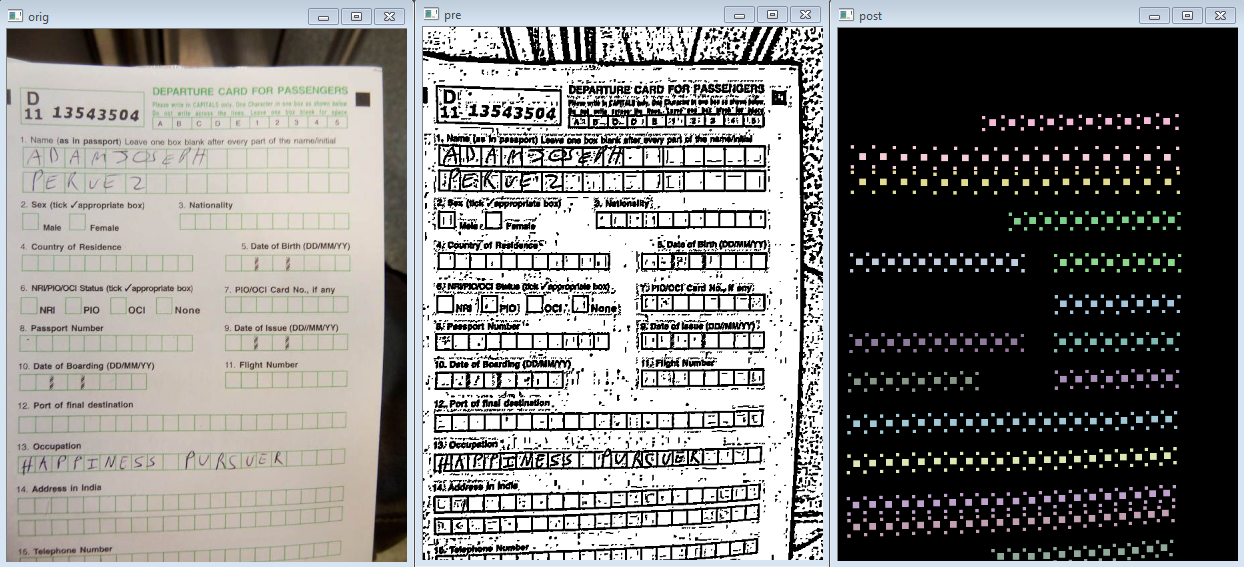 orig
D
11 13543504
DEPARTURE CARD FOR PASSENGERS
Please write in CAPITALS only. One Character in one box as shown below
Do not write across the lines. Leave one box blank for space
A B C D E 1 2 3 4 5
1. Name (as in passport) Leave one box blank after every part of the name/initial
ADAM JOSEPH
PERVEZ
2. Sex (tick ✓appropriate box) 3. Nationality
Male Female
4. Country of Residence 5. Date of Birth (DD/MM/YY)
6. NRI/PIO/OCI Status (tick ✓appropriate box) 7. PIO/OCI Card No., if any
NRI PIO OCI None
8. Passport Number 9. Date of Issue (DD//MM/YY)
10. Date of Boarding (DD/MM/YY) 11. Flight Number
12. Port of final destination
13. Occupation
HAPPINESS PURSUER
14. Address in India
15. Telephone Number
pre
D
11 13543504
DEPARTURE CARD FOR PASSENGERS
1. Name (as in passport) Leave one box blank after every part of the name/initial
ADAM JOSEPH
PERVEZ
2. Sex (tick ✓appropriate box) 3. Nationality
Male Female
4. Country of Residence 5. Date of Birth (DD/MM/YY)
6. NRI/PIO/OCI Status (tick ✓appropriate box) 7. PIO/OCI Card No., if any
NRI PIO OCI None
8. Passport Number 9. Date of Issue (DD//MM/YY)
10. Date of Boarding (DD/MM/YY) 11. Flight Number
12. Port of final destination
13. Occupation
HAPPINESS PURSUER
14. Address in India
15. Telephone Number
post